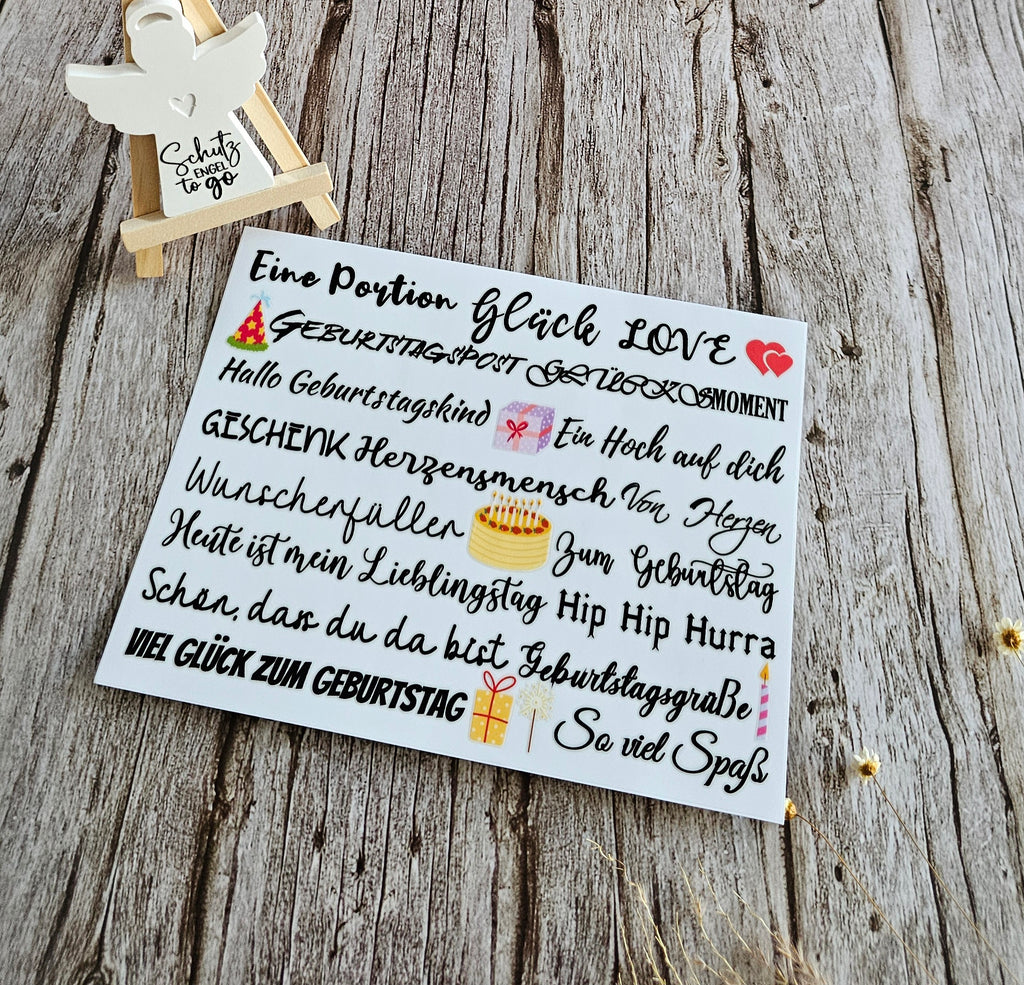 Schutz
ENGEL
to go
Eine Portion Glück LOVE
GEBURTSTAGSPOST GLÜCKSMOMENT
Hallo Geburtstagskind Ein Hoch auf dich
GESCHENK Herzensmensch Von Herzen
Wunscherfüller Zum Geburtstag
Heute ist mein Lieblingstag Hip Hip Hurra
Schön, dass du da bist Geburtstagsgrüße
VIEL GLÜCK ZUM GEBURTSTAG So viel Spaß